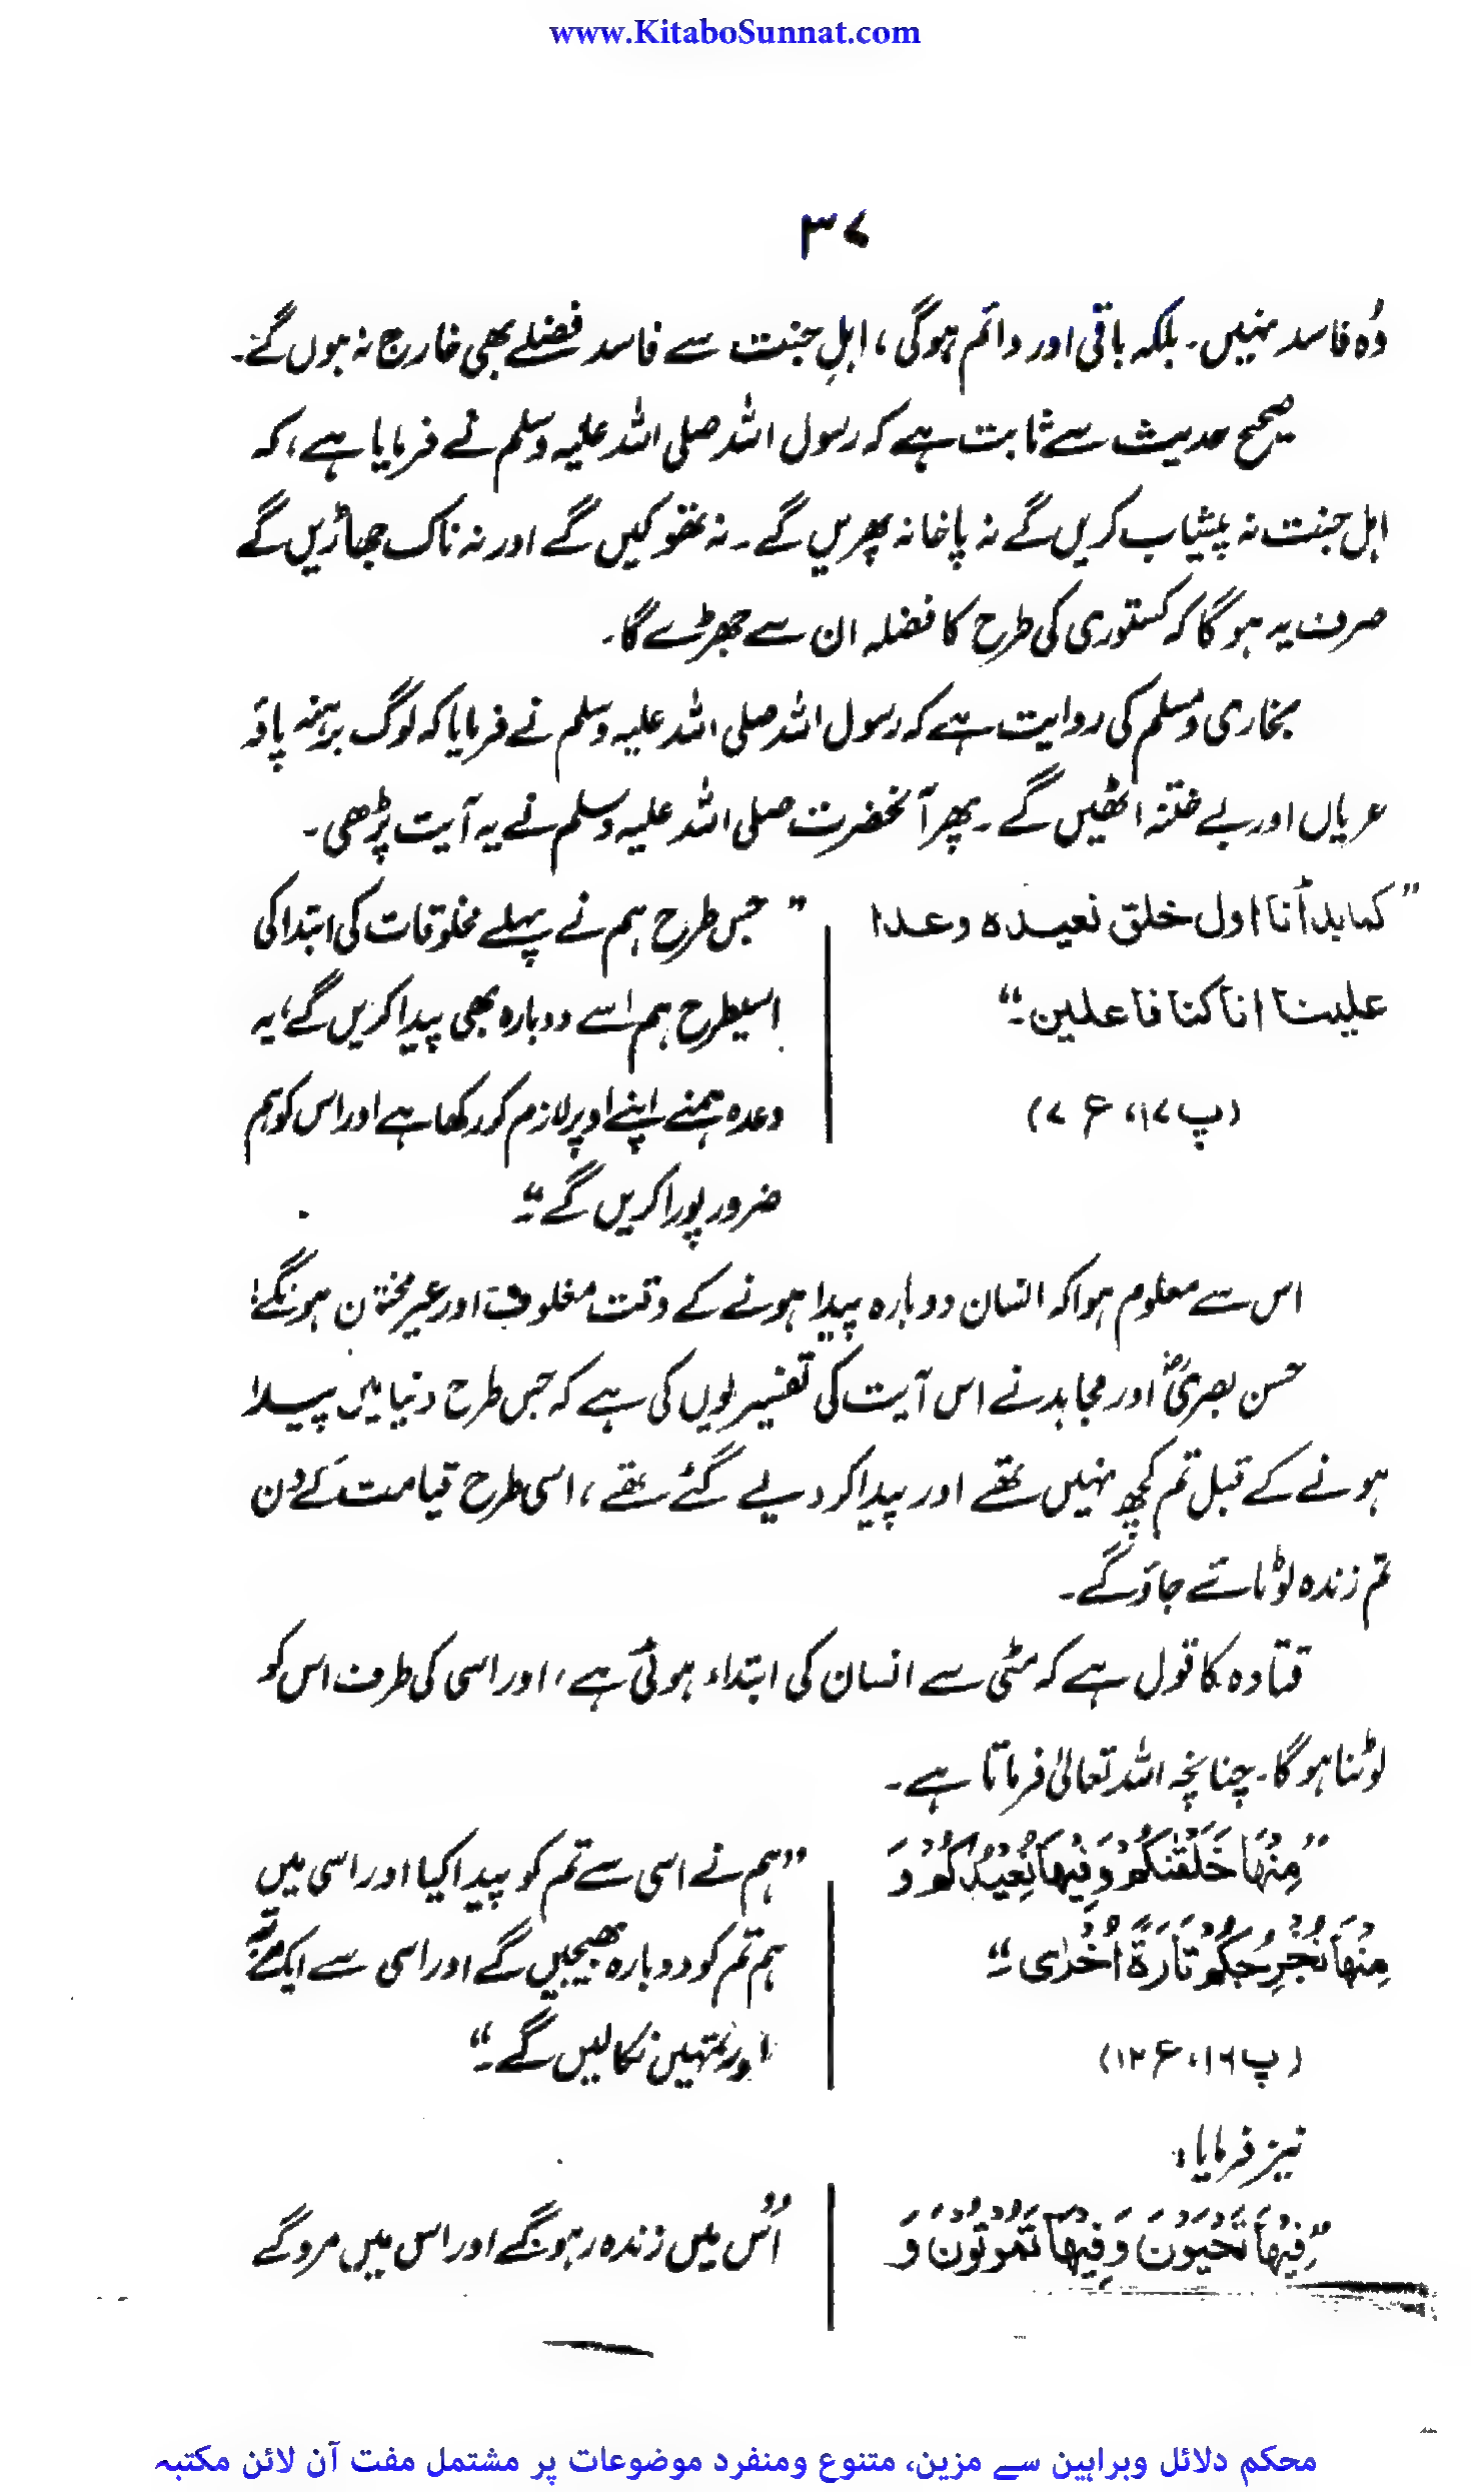 www.KitaboSunnat.com
۳۷
وُہ فاسد نہیں۔ بلکہ باقی اور دائم ہوگی، اہلِ جنت سے فاسد فضلے بھی خارج نہ ہوں گے۔
صحیح حدیث سے ثابت ہے کہ رسول اللہ صلی اللہ علیہ وسلم نے فرمایا ہے، کہ
اہل جنت نہ پیشاب کریں گے نہ پاخانہ پھریں گے۔ نہ تھوکیں گے اور نہ ناک جھاڑیں گے
صرف یہ ہوگا کہ کستوری کی طرح کا فضلہ ان سے جھڑے گا۔
بخاری ومسلم کی روایت ہے کہ رسول اللہ صلی اللہ علیہ وسلم نے فرمایا کہ لوگ برہنہ پاؤ
عریاں اور بے ختنہ اٹھیں گے۔ پھر آنحضرت صلی اللہ علیہ وسلم نے یہ آیت پڑھی۔
”کما بدأنا اول خلق نعیدہ وعدا
علینا انا کنا فاعلین۔“
(پ ۱۷، ع ۷)
”جس طرح ہم نے پہلے مخلوقات کی ابتدا کی
اسیطرح ہم اسے دوبارہ بھی پیدا کریں گے، یہ
وعدہ ہمنے اپنے اوپر لازم کر رکھا ہے اور اس کو ہم
ضرور پورا کریں گے۔“
اس سے معلوم ہوا کہ انسان دوبارہ پیدا ہونے کے وقت مغلوف اور غیر مختون ہونگے!
حسن بصریؒ اور مجاہد نے اس آیت کی تفسیر یوں کی ہے کہ جس طرح دنیا میں پیدا
ہونے کے قبل تم کچھ نہیں تھے اور پیدا کر دیے گئے تھے، اسی طرح قیامت کے دن
تم زندہ لوٹائے جاؤ گے۔
قتادہ کا قول ہے کہ مٹی سے انسان کی ابتداء ہوئی ہے، اور اسی کی طرف اس کو
لوٹنا ہوگا۔ چنانچہ اللہ تعالیٰ فرماتا ہے۔
”مِنْهَا خَلَقْنٰكُمْ وَفِيْهَا نُعِيْدُكُمْ وَ
مِنْهَا نُخْرِجُكُمْ تَارَةً اُخْرٰى۔“
(پ ۱۶، ع ۱۲)
”ہم نے اسی سے تم کو پیدا کیا اور اسی میں
ہم تم کو دوبارہ بھیجیں گے اور اسی سے ایک مرتبہ
اور تمہیں نکالیں گے۔“
نیز فرمایا:
”فِيْهَا تَحْيَوْنَ وَفِيْهَا تَمُوْتُوْنَ وَ
”اُس میں زندہ رہوگے اور اس میں مروگے
محکم دلائل وبراہین سے مزین، متنوع ومنفرد موضوعات پر مشتمل مفت آن لائن مکتبہ